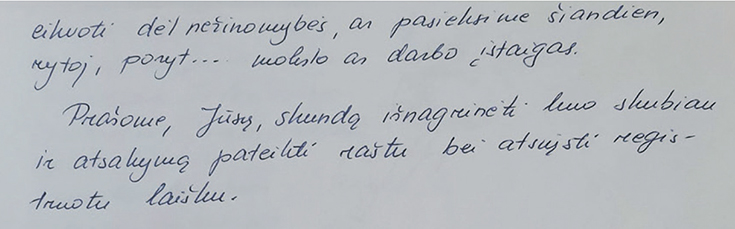 eikvoti dėl nežinomybės, ar pasieksime šiandien,
rytoj, poryt... mokslo ar darbo įstaigas.
Prašome, Jūsų, skundą išnagrinėti kuo skubiau
ir atsakymą pateikti raštu bei atsiųsti regis-
truotu laišku.